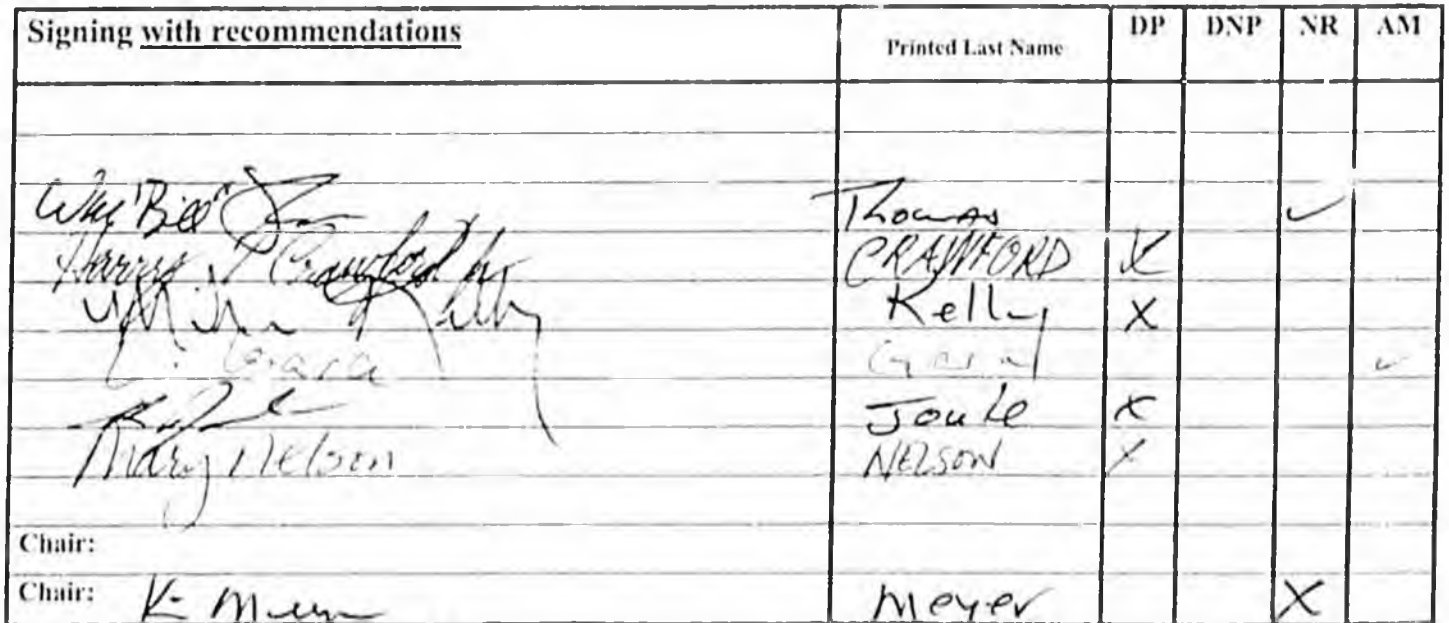 Signing with recommendations Printed Last Name DP DNP NR AM
"Bill" Thomas ✓
Harry Crawford Jr CRAWFORD X
Mike Kelly Kelly X
Gara Gara ✓
Joule X
Mary Nelson NELSON X
Chair:
Chair: K- Meyer X